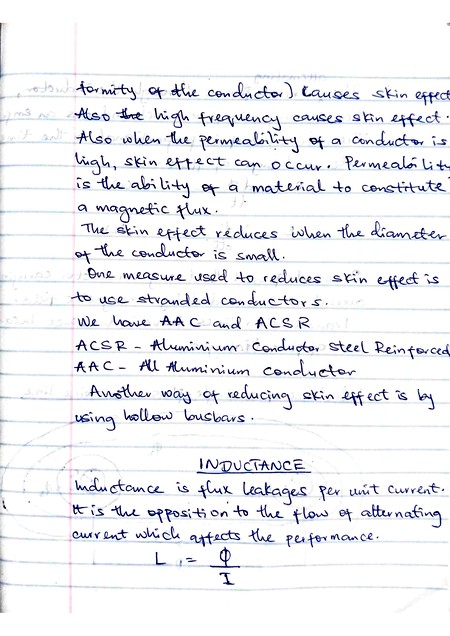 formity of the conductor) causes skin effect
Also the high frequency causes skin effect.
Also when the permeability of a conductor is
high, skin effect can occur. Permeability
is the ability of a material to constitute
a magnetic flux.
The skin effect reduces when the diameter
of the conductor is small.
One measure used to reduces skin effect is
to use stranded conductors.
We have AAC and ACSR
ACSR - Aluminium Conductor Steel Reinforced
AAC - All Aluminium conductor
Another way of reducing skin effect is by
using hollow busbars.
INDUCTANCE
Inductance is flux leakages per unit current.
It is the opposition to the flow of alternating
current which affects the performance.
L = Φ
I